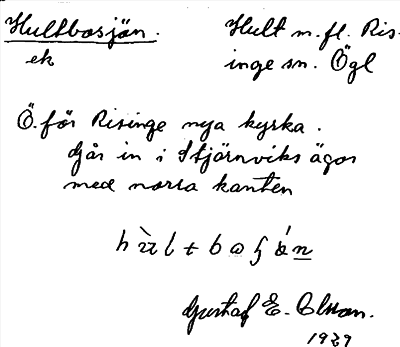 Hultbosjön.
ek
Hult m.fl. Ris-
inge sn. Ögl
Ö. för Risinge nya kyrka.
Går in i Stjärnviks ägor
med norra kanten
Gustaf E. Olsson.